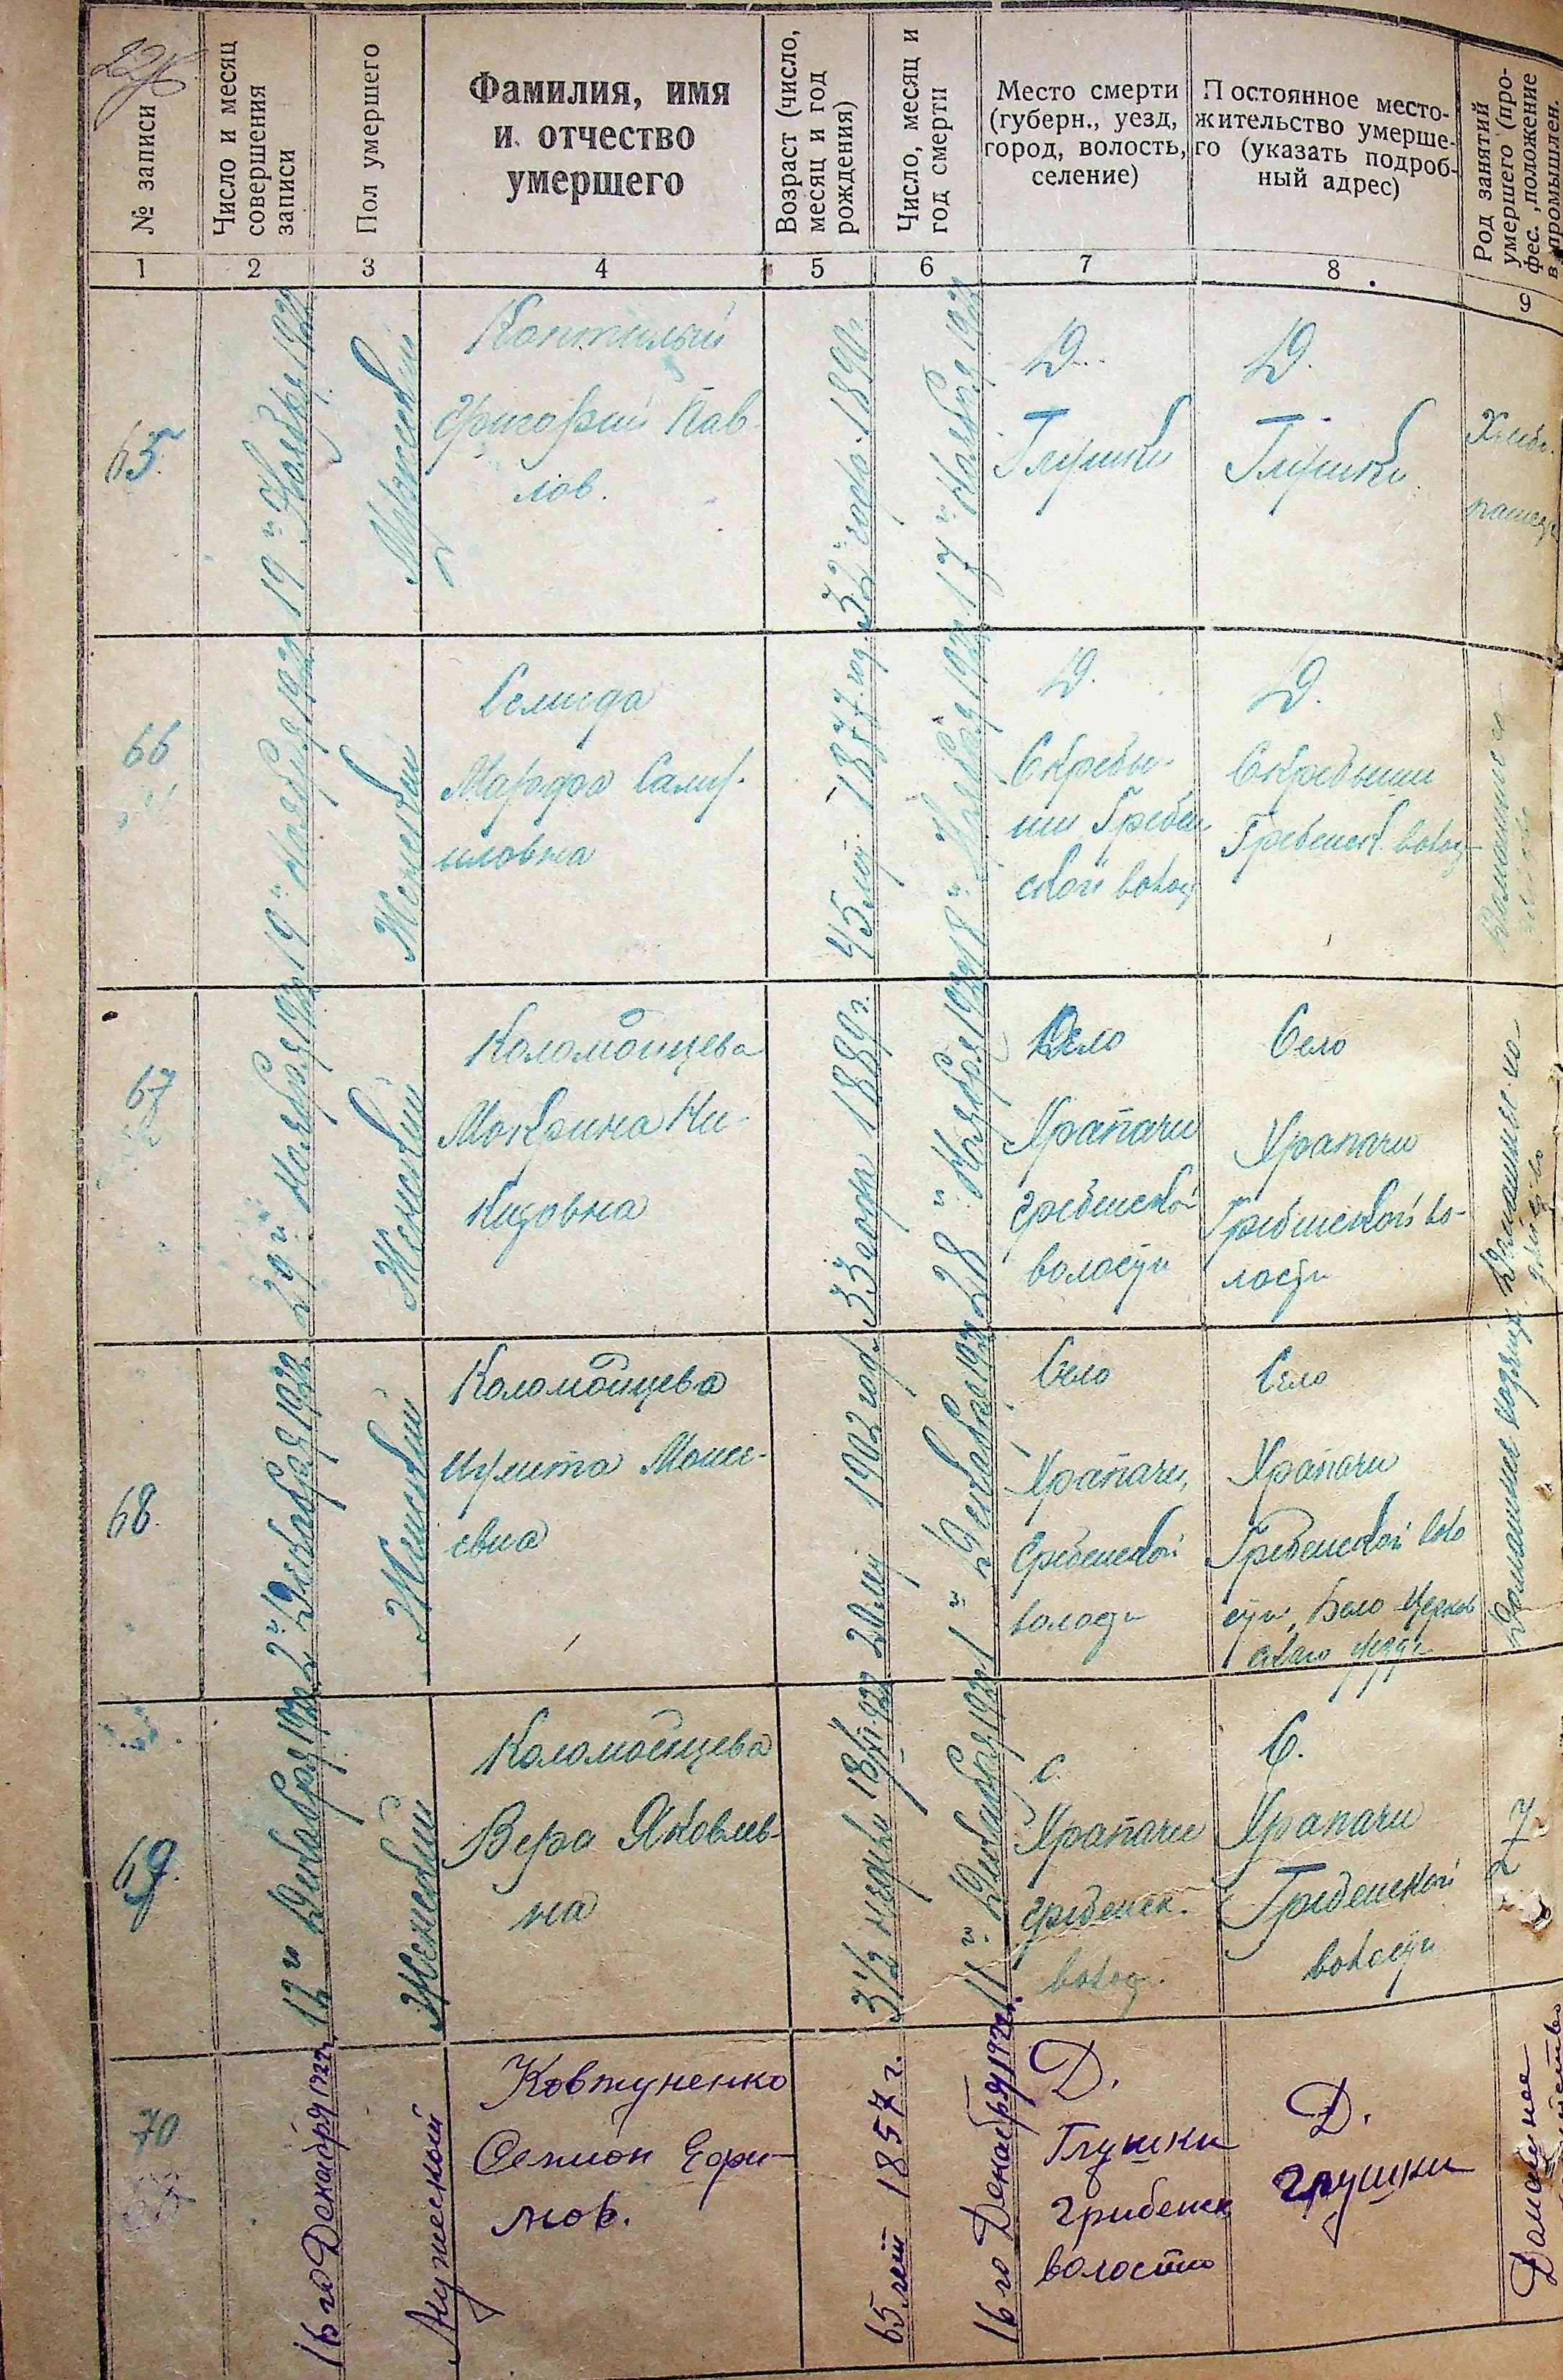 № записи
Число и месяц
совершения
записи
Пол умершего
Фамилия, имя
и отчество
умершего
Возраст (число,
месяц и год
рождения)
Число, месяц и
год смерти
Место смерти
(губерн., уезд,
город, волость,
селение)
Постоянное место-
жительство умерше-
го (указать подроб-
ный адрес)
Род занятий
умершего (про-
фес., положение
в промышлен.
1 2 3 4 5 6 7 8 9
65
19го Ноября 1922
Мужеский
Григорий Пав-
лов.
32 года 1890 г.
17го Ноября 1922
Д.
Глушки
Д.
Глушки
66
19го Ноября 1922
Женский
Селиода
Марфа Саму-
иловна
45 лет 1877 год.
18го Ноября 1922
Д.
Скребы-
ши Гребен
ской волос
Д.
Скребыши
Гребенск. волос
67
29го Ноября 1922
Женский
Коломойцева
Мокрина Ни-
33 года 1889 г.
28го Ноября 1922
Село
Храпачи
Гребенской
волости
Село
Храпачи
Гребенской во-
лости
Домашнее хо-
68.
2го Декабря 1922
Женский
Коломойцева
Иулита Моисе-
евна
20 лет 1902 год.
1го Декабря 1922
Село
Храпачи,
Гребенской
волости
Село
Храпачи
Гребенской воло
сти, Бело Церков
69.
12го Декабря 1922
Женский
Коломойцева
Вера Яковлев-
на
3½ недели
11го Декабря 1922
с.
Храпачи
Гребенск.
волос.
С.
Храпачи
Гребенской
волости
70
16го Декабря 1922 г.
Мужеский
Ковтуненко
Семион Ефи-
мов.
65 лет 1857 г.
16го Декабря 1922 г.
Д.
Глушки
Грибенск
волости
Д.
Глушки
Домашнее